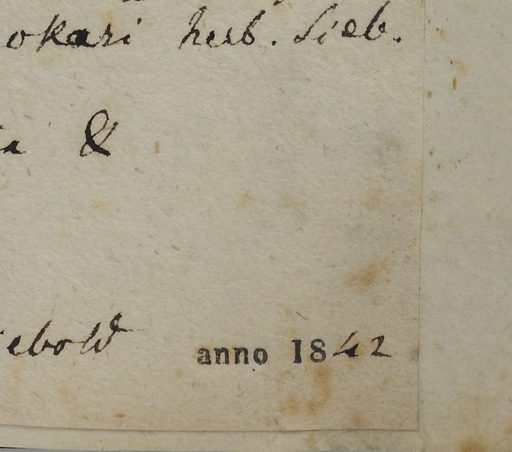 okari herb. Sieb.
&
ebold anno 1842